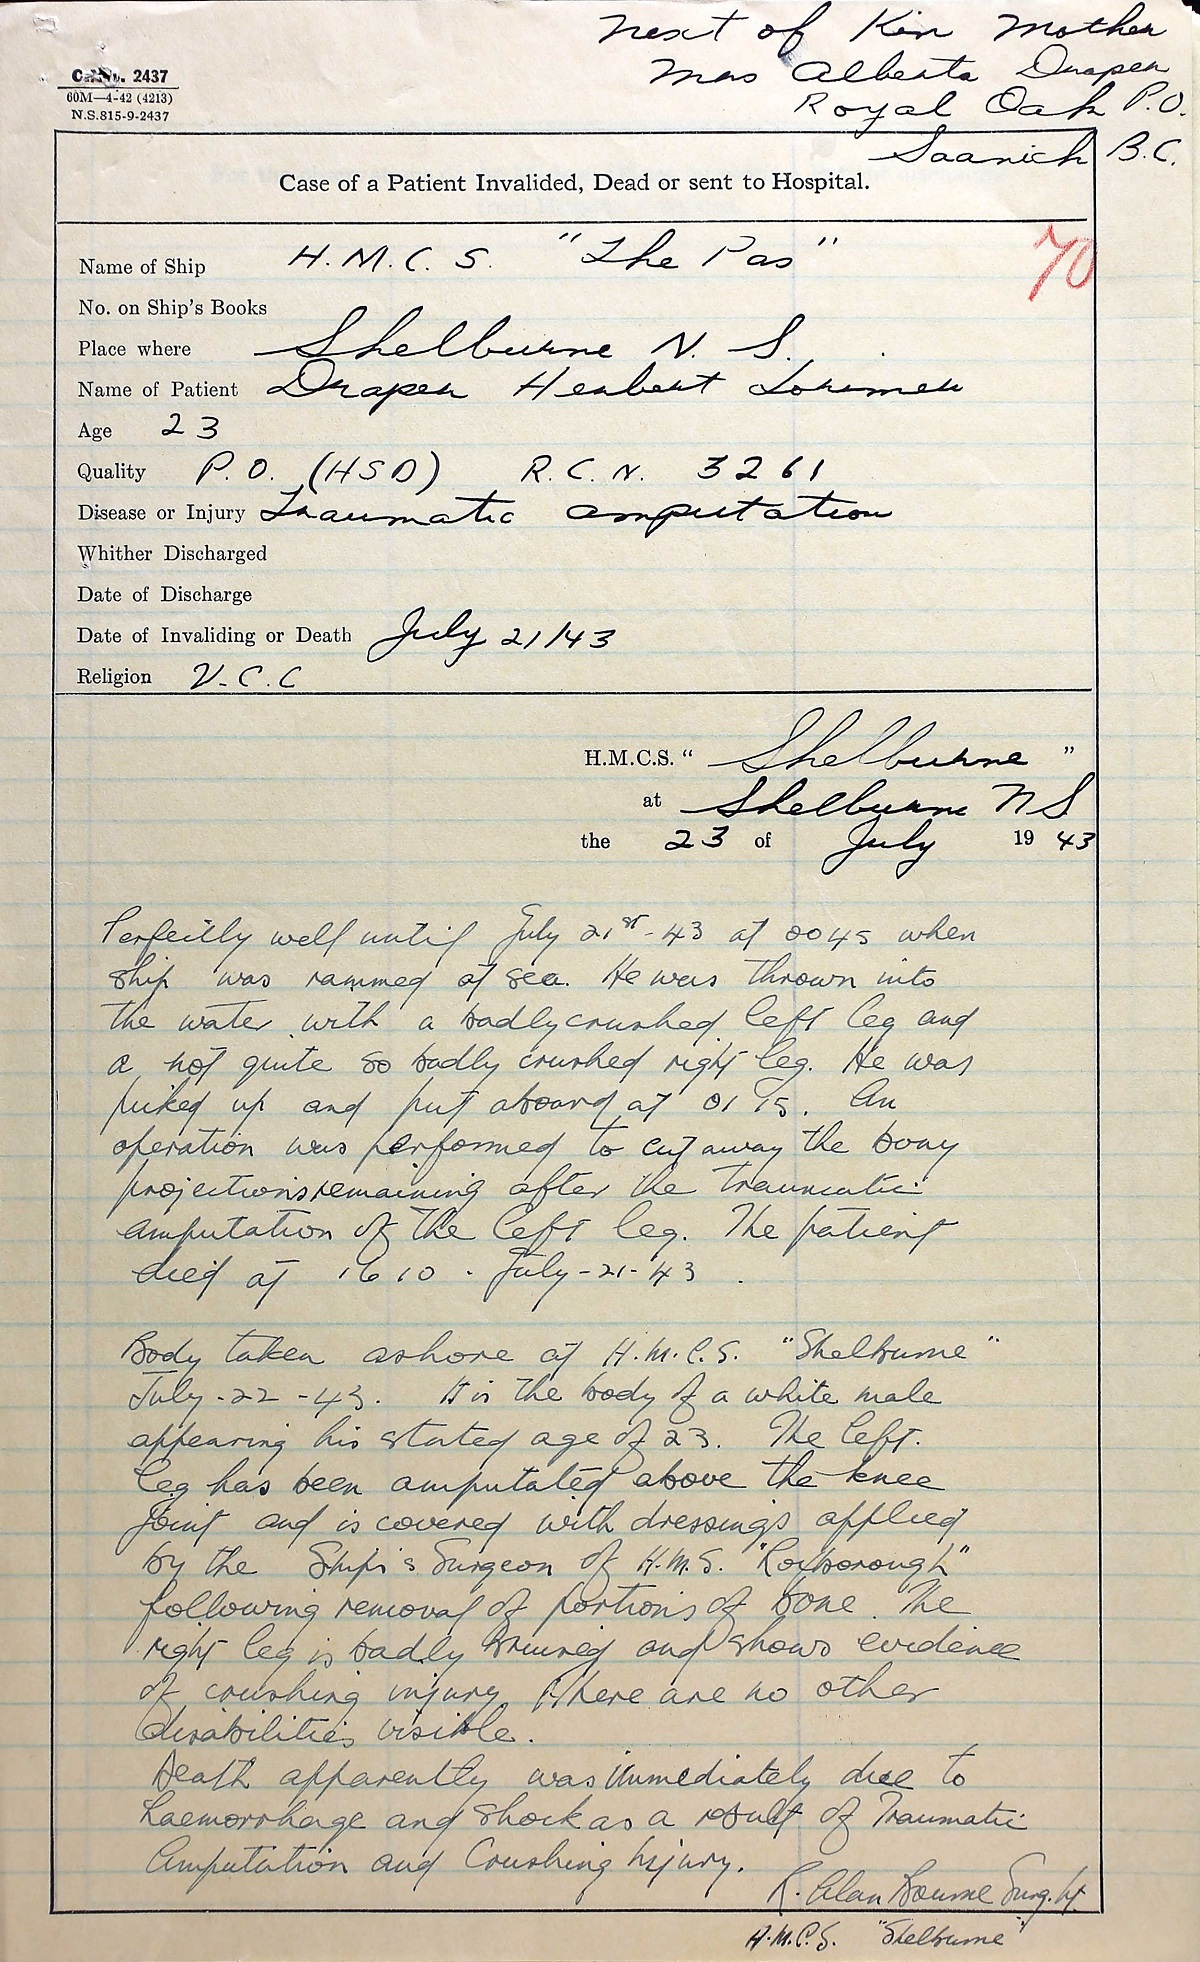 Next of Kin Mother
Mrs Alberta Draper
Royal Oak P.O.
Saanich B.C.
2437
60M—4-42 (4213)
N.S.815-9-2437
Case of a Patient Invalided, Dead or sent to Hospital.
70
Name of Ship H.M.C.S. "The Pas"
No. on Ship's Books
Place where Shelburne N.S.
Name of Patient Draper Herbert Lorimer
Age 23
Quality P.O. (HSD) R.C.N. 3261
Disease or Injury Traumatic amputation
Whither Discharged
Date of Discharge
Date of Invaliding or Death July 21/43
Religion
H.M.C.S. " Shelburne "
at Shelburne NS
the 23 of July 19 43
Perfectly well until July 21st-43 at 0045 when
ship was rammed at sea. He was thrown into
the water with a badly crushed left leg and
a not quite so badly crushed right leg. He was
picked up and put aboard at 0115. An
operation was performed to cut away the bony
projections remaining after the traumatic
amputation of the left leg. The patient
died at 1610 - July-21-43.
Body taken ashore at H.M.C.S. "Shelburne"
July-22-43. It is the body of a white male
appearing his stated age of 23. The left.
leg has been amputated above the knee
joint and is covered with dressings applied
by the Ship's Surgeon of H.M.S. "Roxborough"
following removal of portions of bone. The
right leg is badly bruised and shows evidence
of crushing injury. There are no other
disabilities visible.
Death apparently was immediately due to
haemorrhage and shock as a result of Traumatic
Amputation and Crushing Injury.
R. Alan Bourne Surg. Lt.
H.M.C.S. "Shelburne"